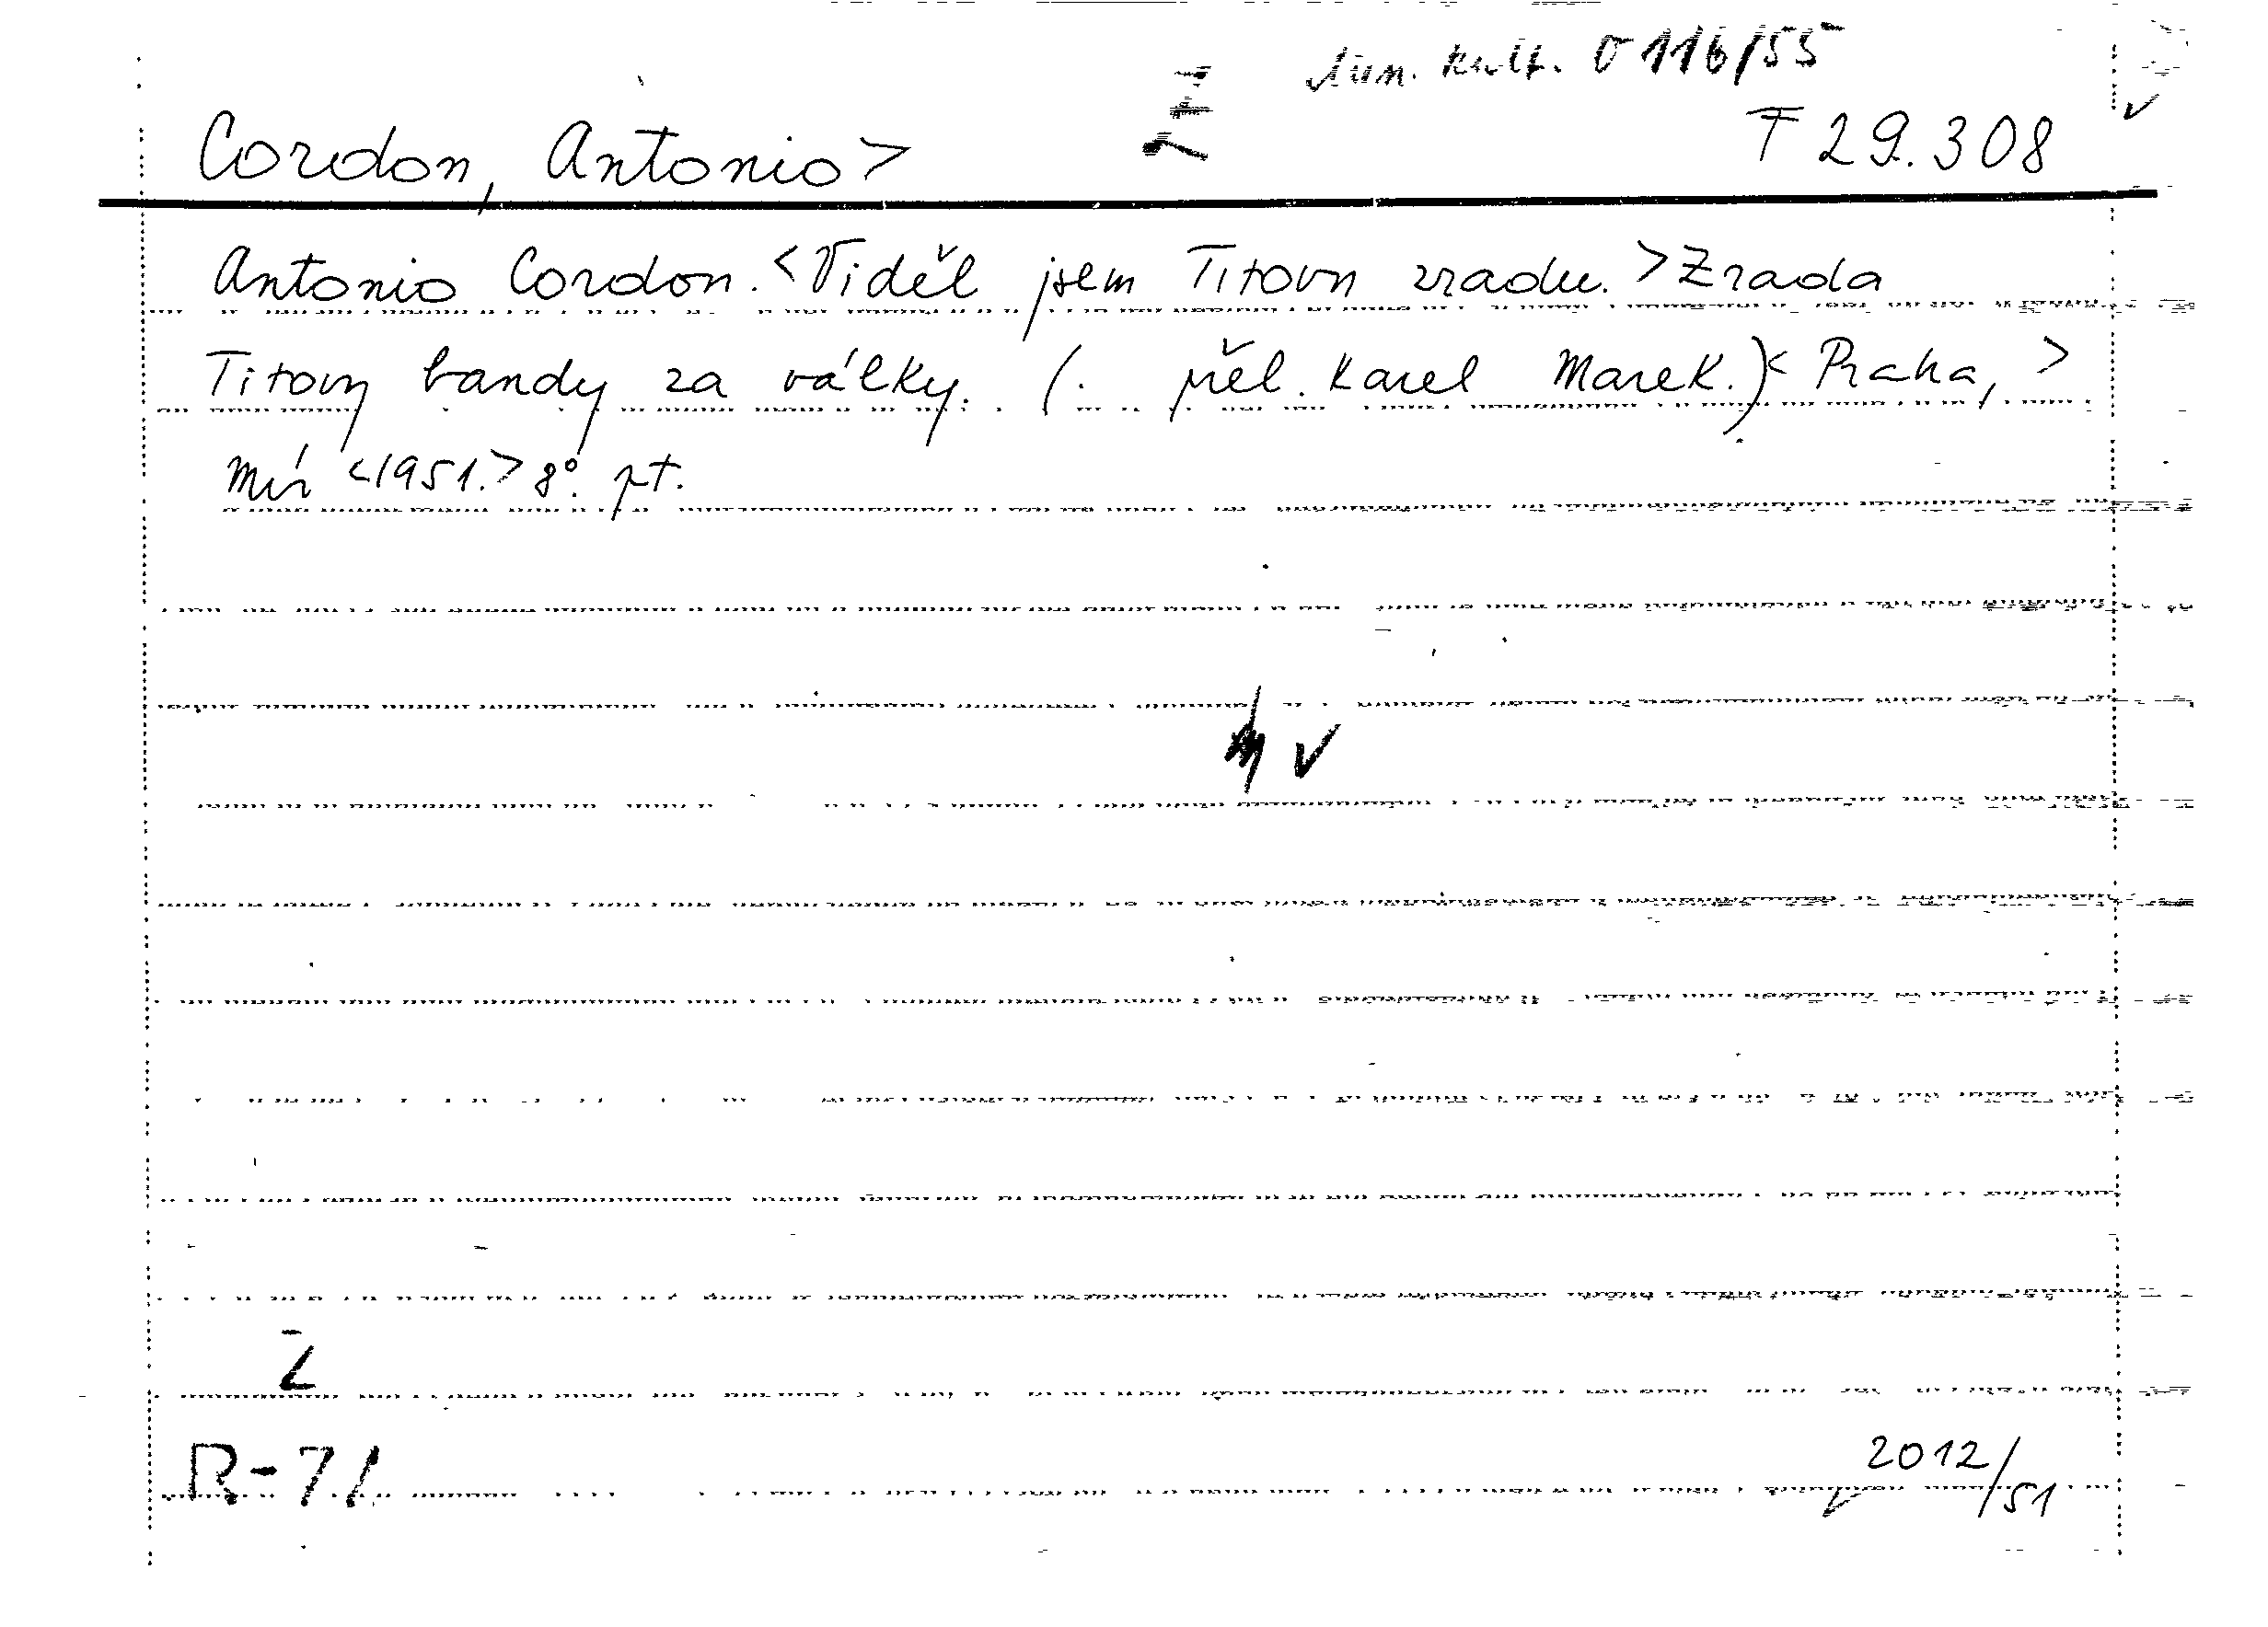 Min. kult. O 116/55
Cordon, Antonio> F 29.308
Antonio Cordon. <Viděl jsem Titovu zradu.> Zrada
Titovy bandy za války. (. přel. Karel Marek.)< Praha, >
Mír <1951.> 8°. pt.
Z
R-71
2012/51